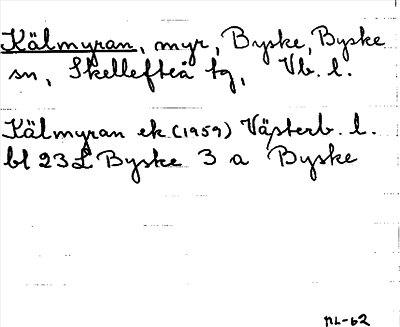 Kälmyran, myr, Byske, Byske
sn, Skellefteå tg, Vb. l.
Kälmyran ek (1959) Västerb. l.
bl 23 L Byske 3 a Byske
NL-62